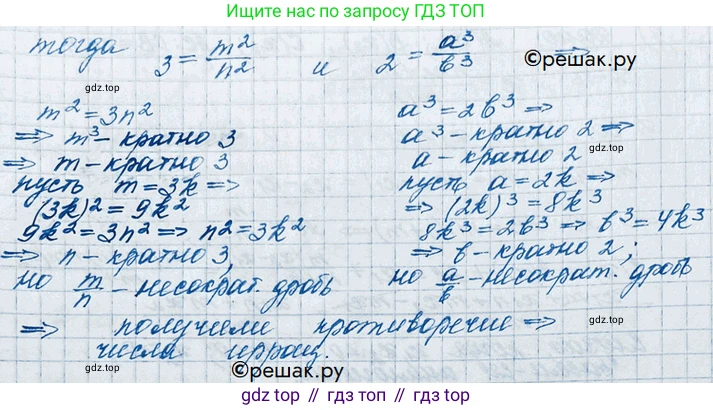 Ищите нас по запросу ГДЗ ТОП
тогда 3 = m²/n² и 2 = a³/b³ ⇒
©решак.ру
gdz.top
m² = 3n²
⇒ m³ - кратно 3
⇒ m - кратно 3
пусть m = 3k ⇒
(3k)² = 9k²
9k² = 3n² ⇒ n² = 3k²
⇒ n - кратно 3,
но m/n - несократ. дробь
a³ = 2b³ ⇒
a³ - кратно 2 ⇒
a - кратно 2
пусть a = 2k ⇒
⇒ (2k)³ = 8k³
8k³ = 2b³ ⇒ b³ = 4k³
⇒ b - кратно 2;
но a/b - несократ. дробь
⇒ получили противоречие ⇒
числа иррац.
gdz.top
gdz.top
gdz.top
gdz.top
gdz.top
gdz.top
©решак.ру
gdz top // гдз топ // gdz.top